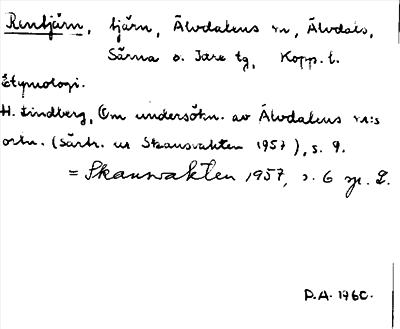 Rentjärn, tjärn, Älvdalens sn, Älvdals,
Särna o. Idre tg, Kopp. l.
Etymologi.
H. Lindberg, Om undersökn. av Älvdalens sn:s
ortn. (Särtr. ur Skansvakten 1957), s. 9.
= Skansvakten 1957, s. 6 sp. 2.
P.A. 1960.